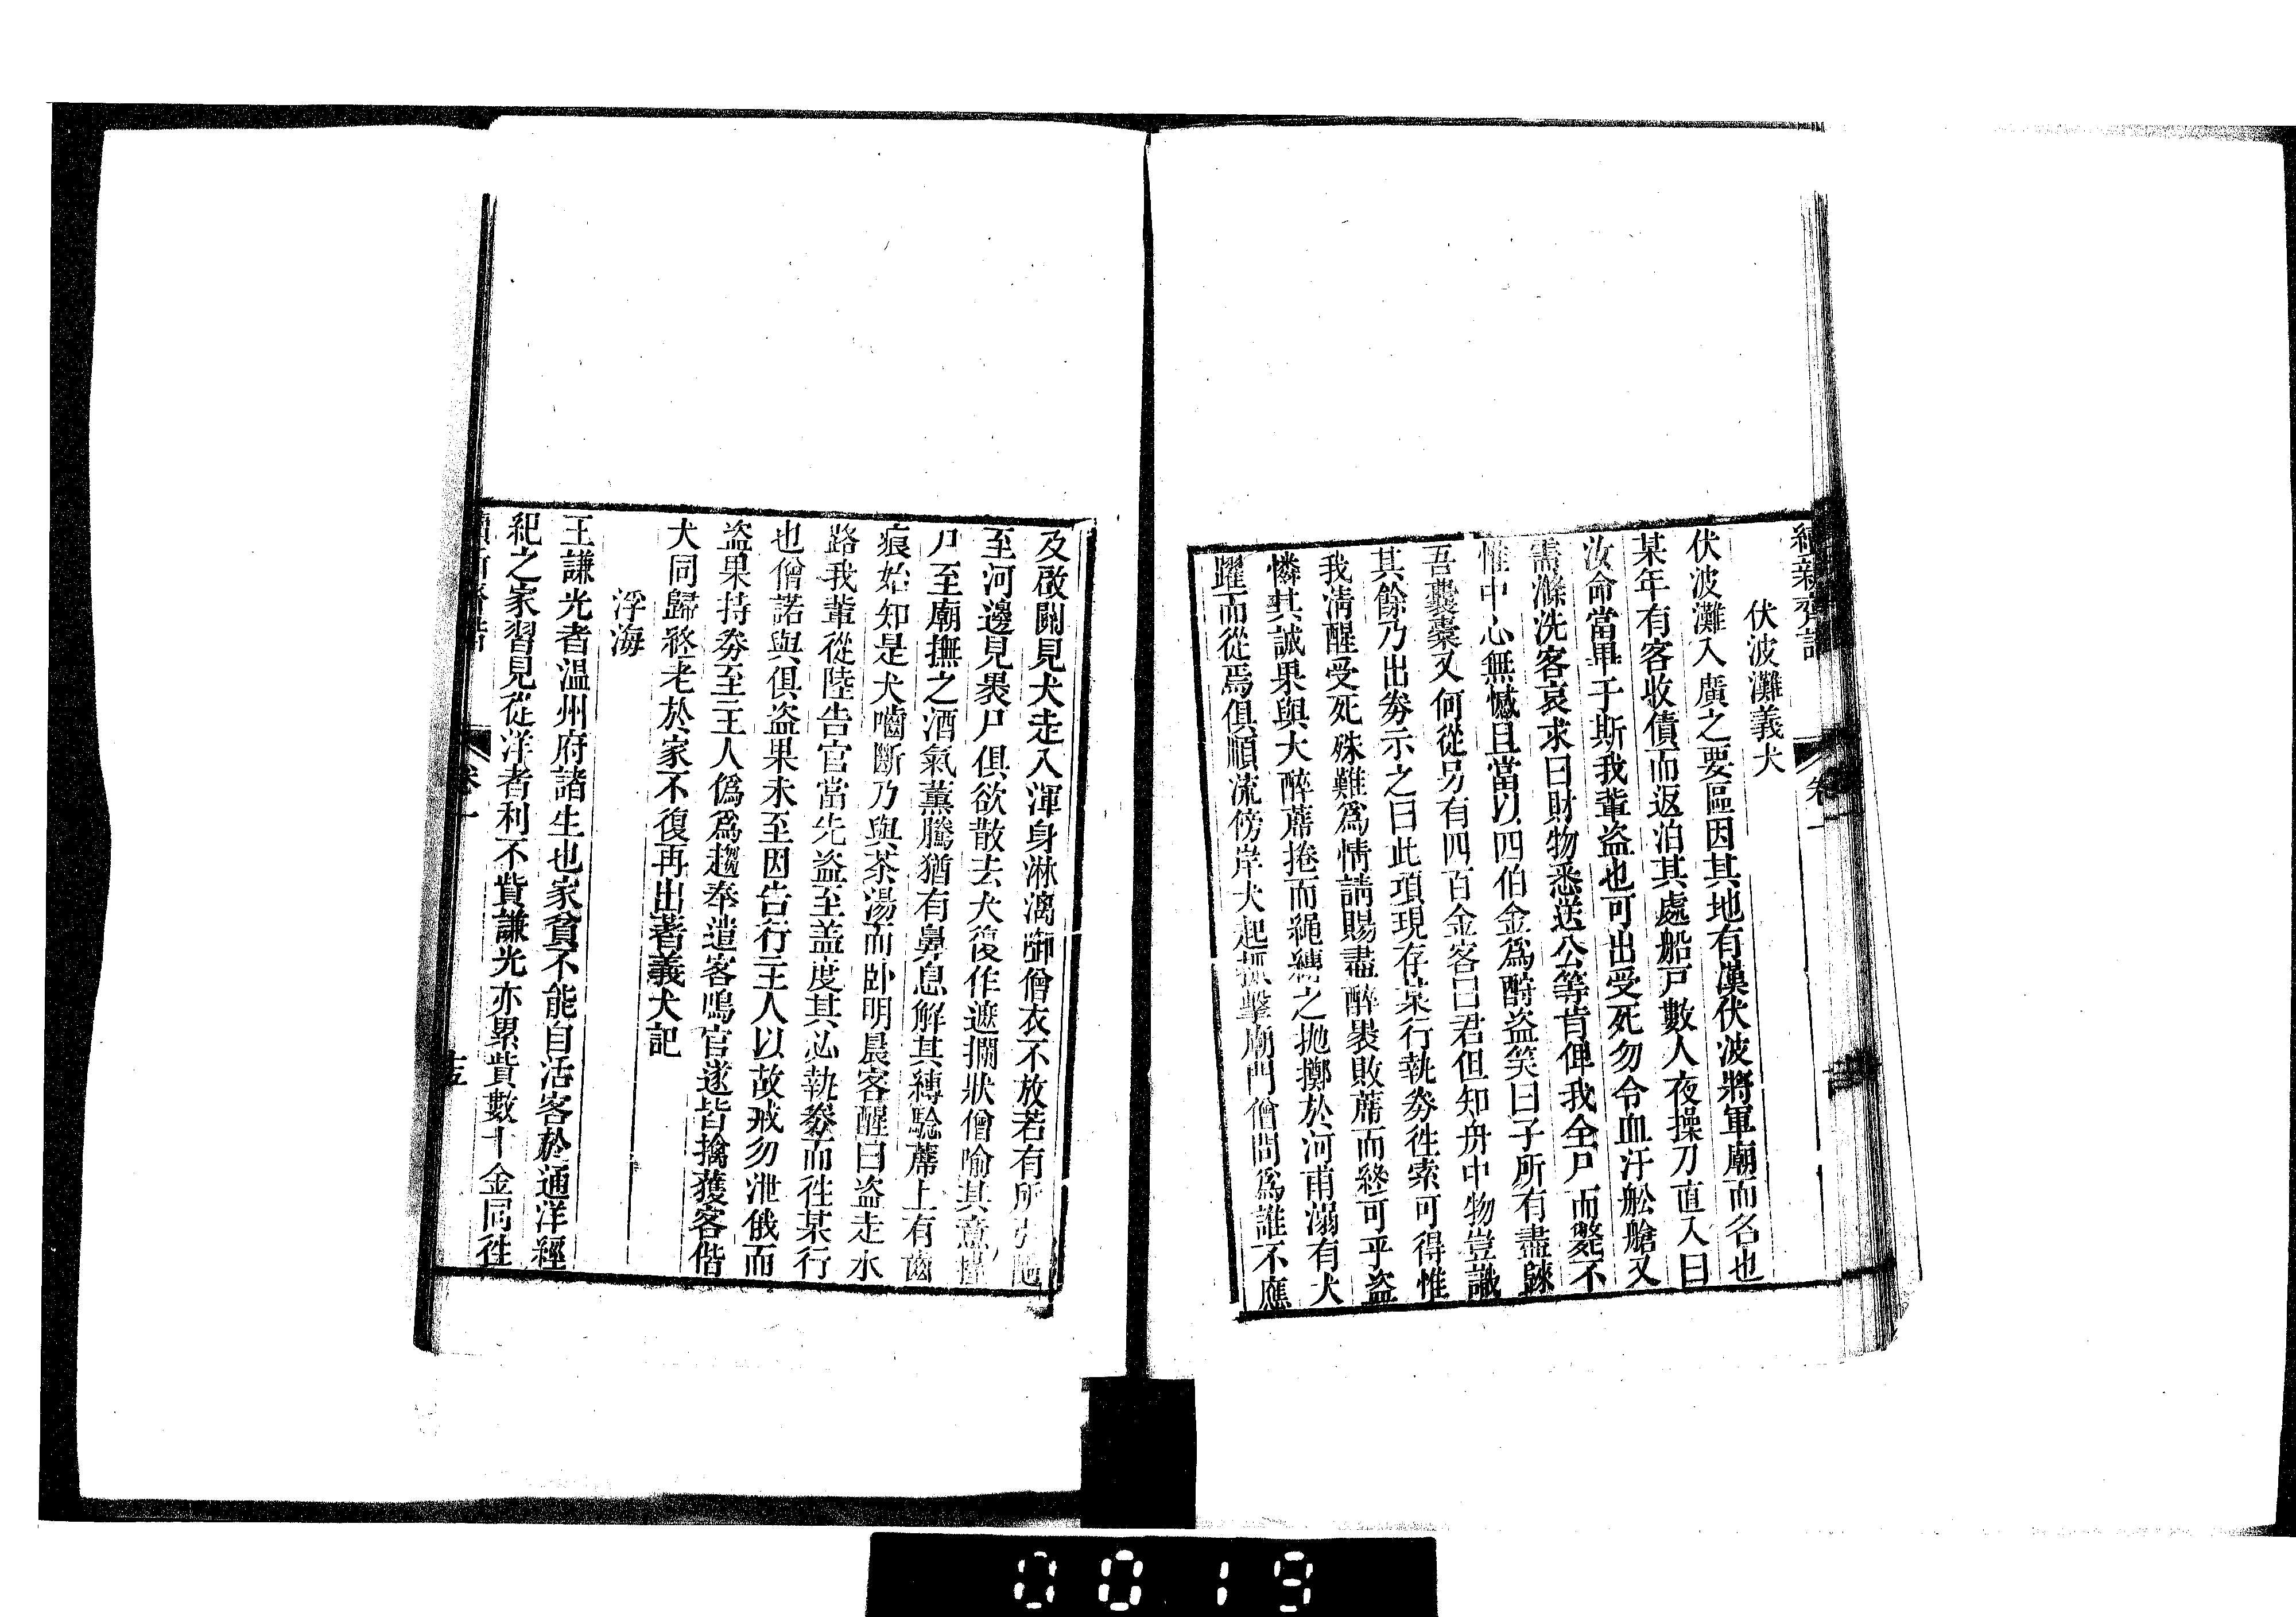 續新齊諧
卷一
伏波灘義犬
伏波灘入廣之要區因其地有漢伏波將軍廟而名也
某年有客收債而返泊其處船戸數人夜操刀直入曰
汝命當畢于斯我輩盗也可出受死勿令血汙舩艙又
需滌洗客哀求曰財物悉送公等肯俾我全尸而斃不
惟中心無憾且當以四伯金爲酧盗笑曰子所有盡歸
吾囊橐又何從另有四百金客曰君但知舟中物豈識
其餘乃出劵示之曰此項現存某行執劵徃索可得惟
我淸醒受死殊難爲情請賜盡醉裹敗蓆而終可乎盗
憐其誠果與大醉蓆捲而繩縛之拋擲於河甫溺有犬
躍而從焉俱順流傍岸犬起抓擊廟門僧問爲誰不應
及啟關見犬走入渾身淋漓啣僧衣不放若有所引隨
至河邊見裹尸俱欲散去犬復作遮攔狀僧喻其意
尸至廟撫之酒氣薰騰猶有鼻息解其縛驗蓆上有齒
痕始知是犬嚙斷乃與茶湯而卧明晨客醒曰盗走水
路我輩從陸告官當先盗至盖度其必執劵而徃某行
也僧諾與俱盗果未至因告行主人以故戒勿泄俄而
盜果持劵至主人僞爲趨奉遣客鳴官遂皆擒獲客偕
犬同歸終老於家不復再出著義犬記
浮海
王謙光者温州府諸生也家貧不能自活客於通洋經
紀之家習見從洋者利不貲謙光亦累貲數十金同徃
續新齊諧
卷一
十五
0019